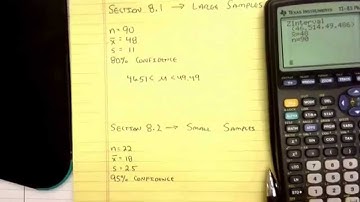 SECTION 8.1 → LARGE SAMPLES
n = 90
x̄ = 48
s = 11
80% CONFIDENCE
46.51 < μ < 49.49
SECTION 8.2 → SMALL SAMPLES
n = 22
x̄ = 18
s = 2.5
95% CONFIDENCE
TEXAS INSTRUMENTS TI-83 Plus
ZInterval
(46.514,49.486)
x̄=48
n=90